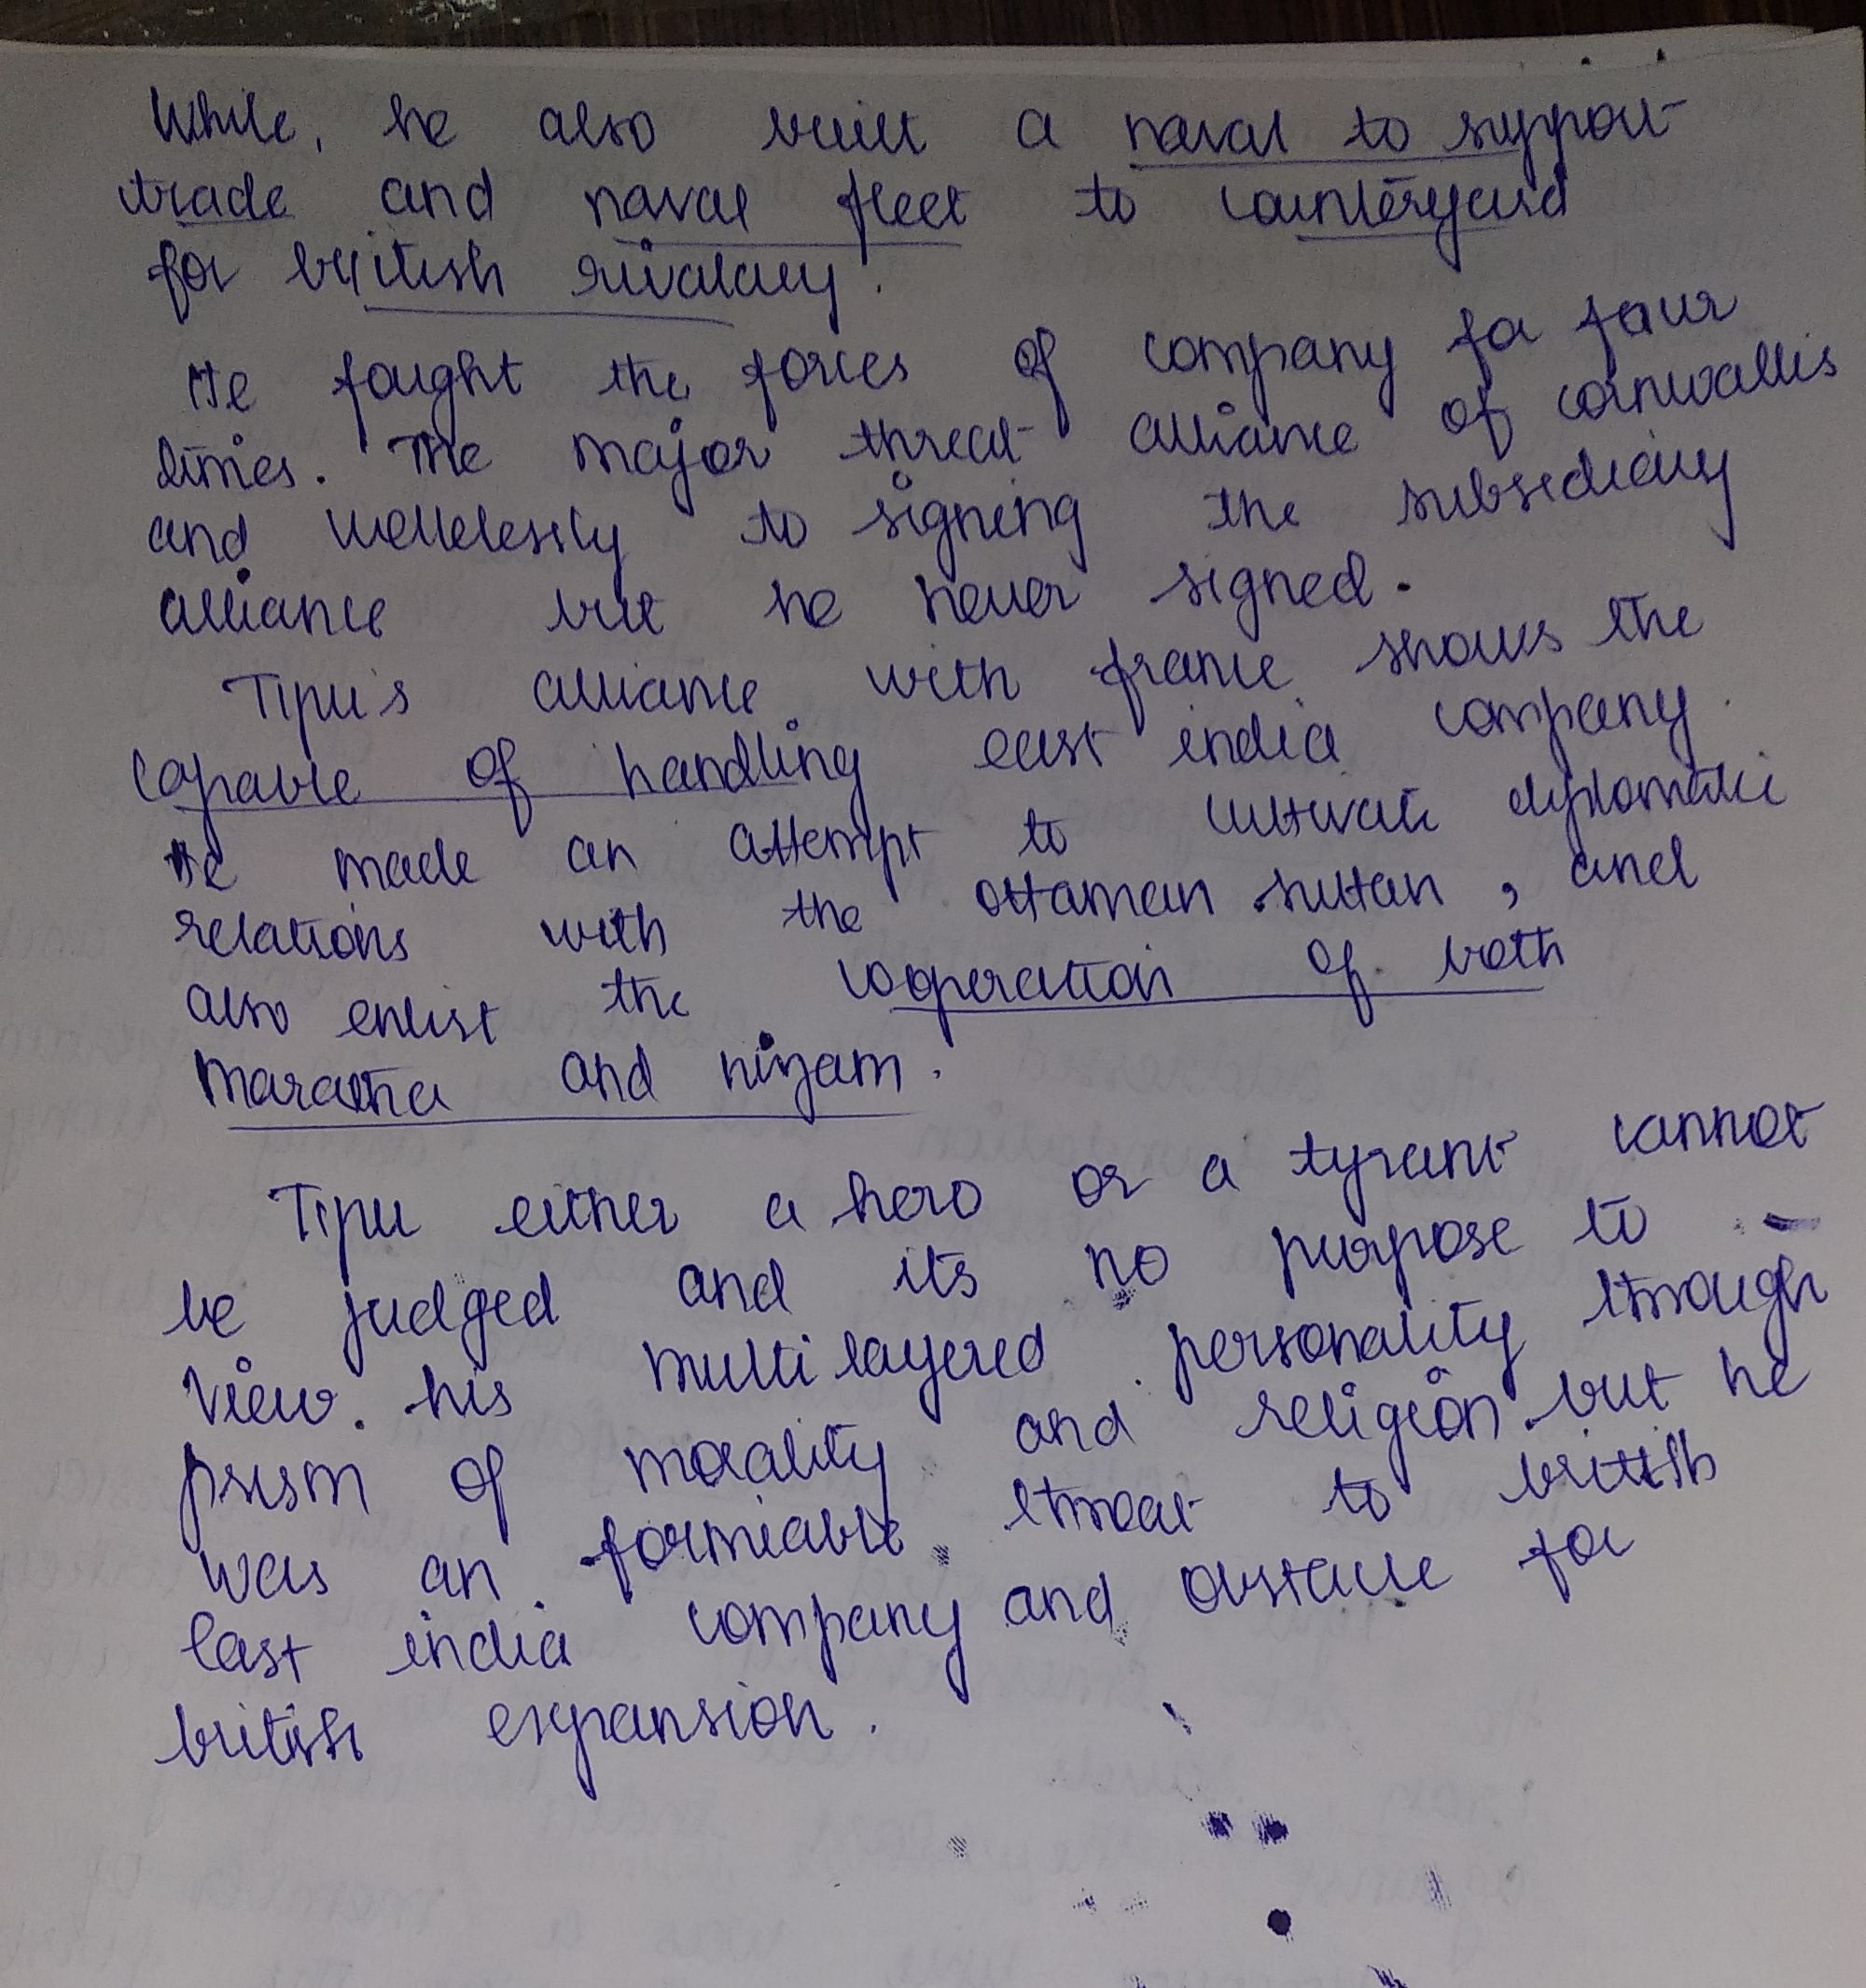 While, he also built a naval to support
trade and naval fleet to counterguard
for british rivalary.
He fought the forces of company for four
times. The major threat alliance of cornwallis
and wellelessly to signing the subsediary
alliance but he never signed.
Tipu's alliance with france shows the
capable of handling east india company.
He made an attempt to cultivate diplomatic
relations with the ottaman sultan, and
also enlist the cooperation of both
maratha and nizam.
Tipu either a hero or a tyrant cannot
be judged and its no purpose to
view his multilayered personality through
prism of morality and religion but he
was an formiable threat to british
east india company and obstacle for
british expansion.